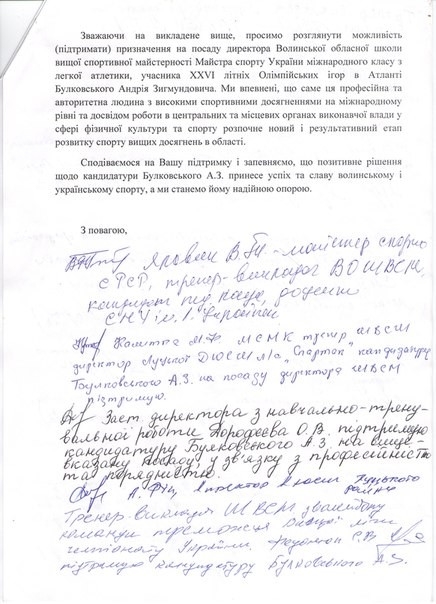 Зважаючи на викладене вище, просимо розглянути можливість
(підтримати) призначення на посаду директора Волинської обласної школи
вищої спортивної майстерності Майстра спорту України міжнародного класу з
легкої атлетики, учасника XXVI літніх Олімпійських ігор в Атланті
Булковського Андрія Зигмундовича. Ми впевнені, що саме ця професійна та
авторитетна людина з високими спортивними досягненнями на міжнародному
рівні та досвідом роботи в центральних та місцевих органах виконавчої влади у
сфері фізичної культури та спорту розпочне новий і результативний етап
розвитку спорту вищих досягнень в області.
Сподіваємося на Вашу підтримку і запевняємо, що позитивне рішення
щодо кандидатури Булковського А.З. принесе успіх та славу волинському і
українському спорту, а ми станемо йому надійною опорою.
З повагою,
майстер спорту
СРСР, тренер-викладач ВОШВСМ,
кандидат наук, доцент
СНУ ім. Л. Українки
МСМК тренер ШВСМ
директор Луцької "Спартак" кандидатуру
Булковського А.З. на посаду директора ШВСМ
підтримую.
Заст. директора з навчально-трену-
вальної роботи О.В. підтримую
кандидатуру Булковського А.З. на вище-
вказану посаду, у зв'язку з професійністю
та порядністю.
Луцького
району
Тренер-викладач ШВСМ
команди
чемпіонату України. С.В.
підтримую кандидатуру Булковського А.З.